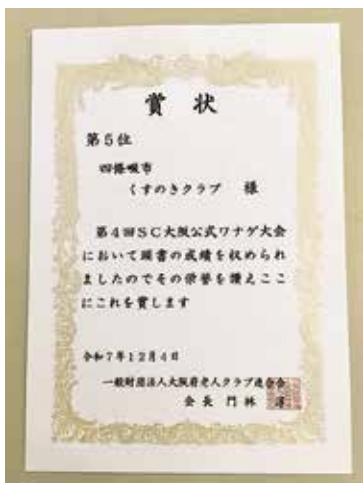 賞状
第5位
四條畷市
くすのきクラブ 様
第4回SC大阪公式ワナゲ大会
において頭書の成績を収められ
ましたのでその栄誉を讃えここ
にこれを賞します
令和7年12月4日
一般財団法人大阪府老人クラブ連合会
会長 門林